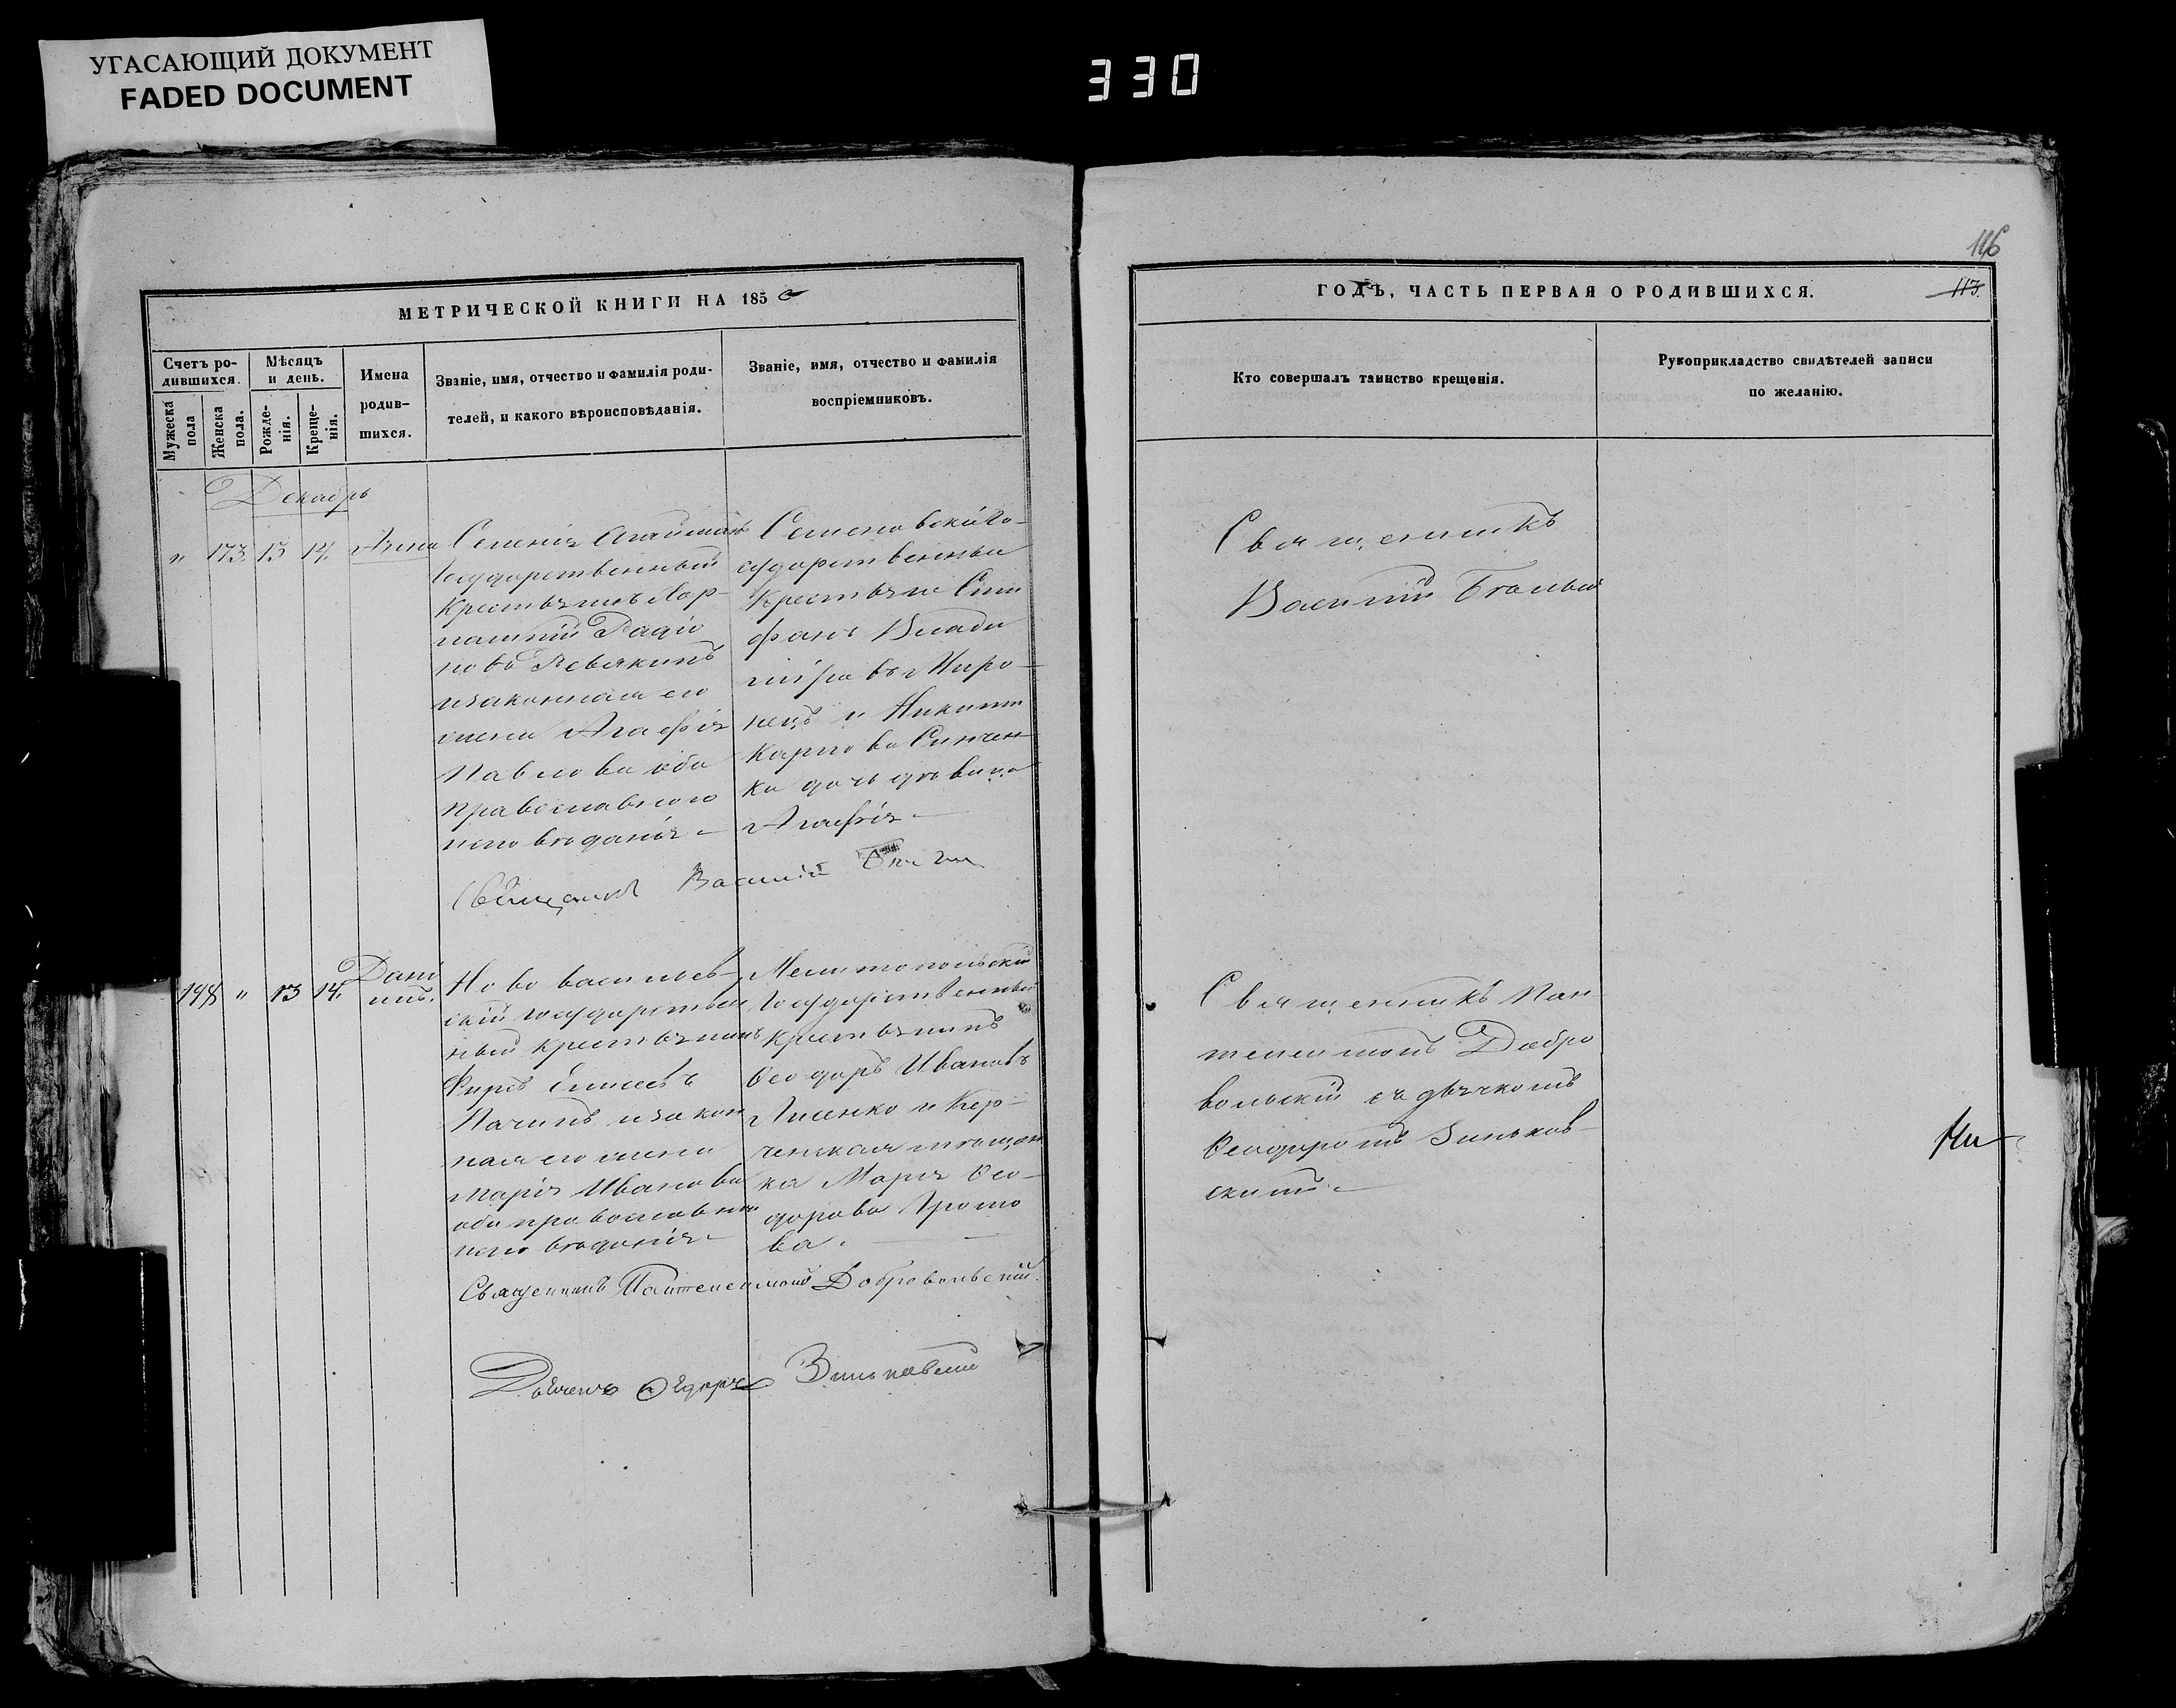 УГАСАЮЩИЙ ДОКУМЕНТ
FADED DOCUMENT
330
МЕТРИЧЕСКОЙ КНИГИ НА 185
Счетъ ро-
дившихся.
Мужеска
пола
Женска
пола.
Мѣсяцъ
и день.
Рожде-
нія.
Креще-
нія.
Имена
родив-
шихся.
Званіе, имя, отчество и фамилія роди-
телей, и какого вѣроисповѣданія.
Званіе, имя, отчество и фамилія
воспріемниковъ.
Декабрь
" 173. 13 14. Анна
Селенія
Государственный
Крестьянинъ Хар-
Радіо
новъ
изаконная его
жена Агафія
Павлова оба
православнаго
исповѣданія
Семеновскій Го-
сударственный
Крестьяне
фанъ Влади
міровъ Миро-
нецъ и Никит
Карпова
ка дочь дѣвица
Агафія
Священникъ Василій
198 " 13 14. Дані
илъ.
Новоvасильев-
скій государствен
ный крестьянинъ
Фирсъ Елисеевъ
изакон
ная его жена
Марія Иванова
оба православна
исповѣданія
Мелитопольскій
Государственный
Крестьянинъ
Ѳеодоръ Ивановъ
Лисенко и Кер-
ченская мѣщан
ка Марія Ѳео-
дорова Громо
ва.
Священникъ Пантелеимонъ Добровольскій.
Дьячекъ Ѳедоръ Зиньковскій
116
ГОДЪ, ЧАСТЬ ПЕРВАЯ О РОДИВШИХСЯ.
113.
Кто совершалъ таинство крещенія.
Рукоприкладство свидѣтелей записи
по желанію.
Священникъ
Василій
Священникъ Пан
телеимонъ Добро
вольскій съ дьячкомъ
Ѳеодоромъ Зиньков-
скимъ.